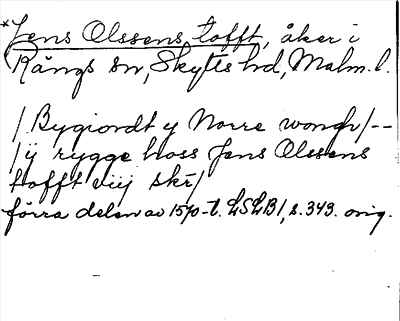 *Jens Olssens tofft, åker i
Rängs sn, Skytts hd, Malm. l.
/Bygiordt y Norre wongh/--
/ÿ rygge hoss Jens Olssens
tofft viij skr/
förra delen av 1570-t. LSLB1, s. 343. orig.